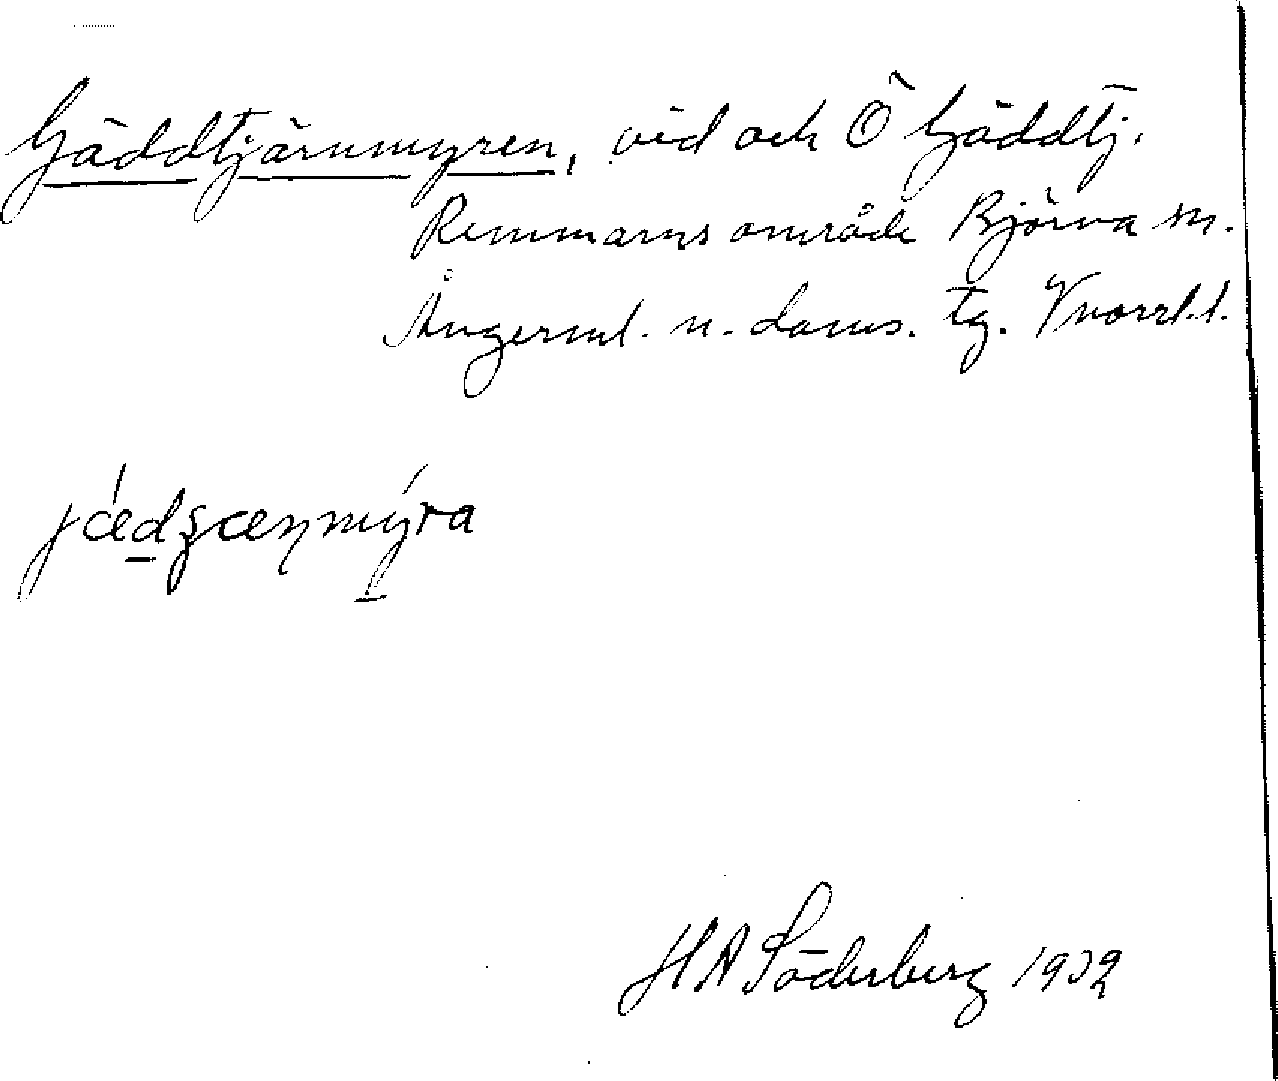 Gäddtjärnmyren, vid och Ö Gäddtj.
Remmarns område Björna sn.
Ångerml. n. doms. tg. Vnorrl.l.
jǽdʂæɳmýra
HASöderberg 1932